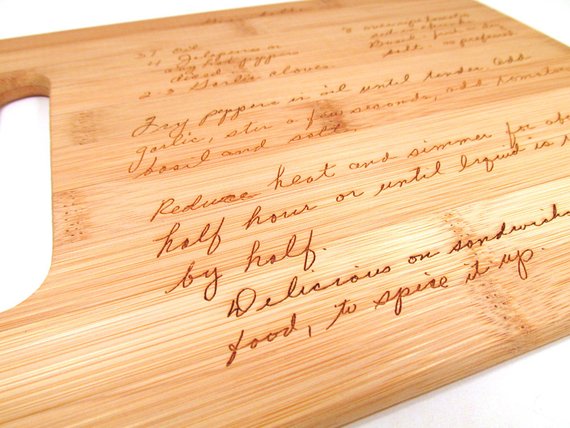 3 T oil
4 jalapenos or
any hot peppers
diced
2-3 Garlic cloves
6 average
Basil
salt - as preferred
Fry peppers in oil until tender. Add
garlic, stir a few seconds, add tomatoes
basil and salt.
Reduce heat and simmer for
half hour or until liquid is
by half.
Delicious on sandwiches
food, to spice it up.